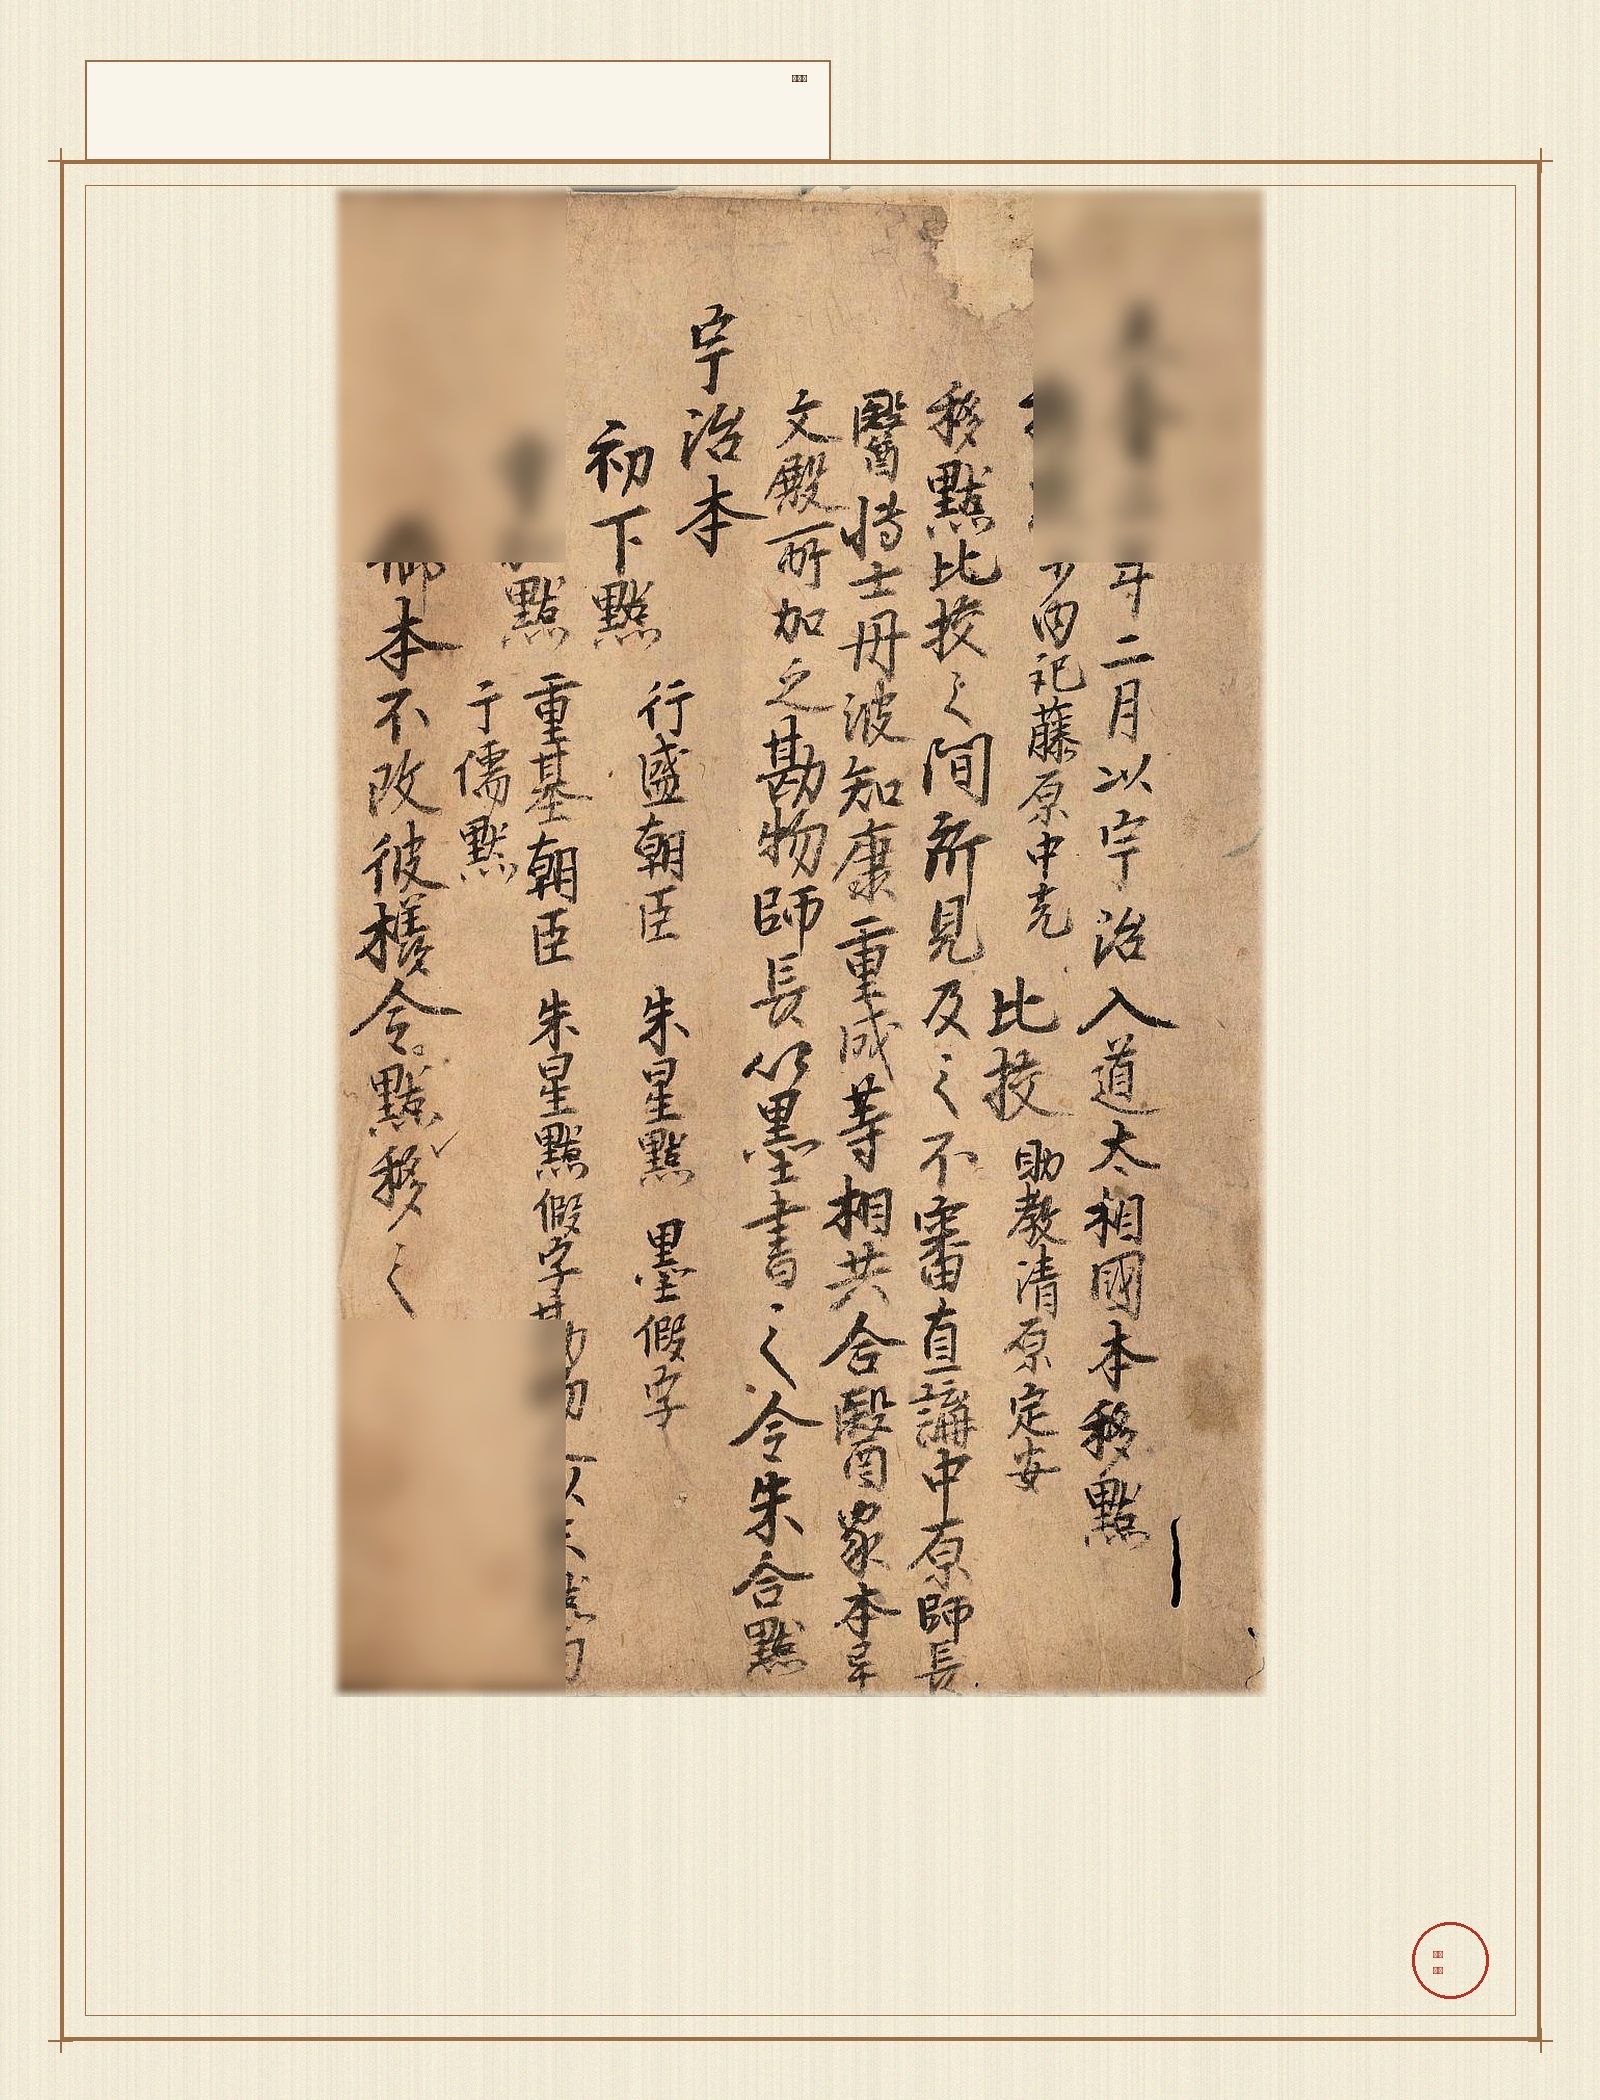 年二月以宇治入道太相國本移點
少内記藤原中光
比挍 助教清原定安
移點比挍之間所見及之不審直講中原師長
醫博士丹波知康重成等相共合醫家本畢
文殿所加之勘物師長以墨書之令朱合點
宇治本
初下點 行盛朝臣 朱星點 墨假字
點 重基朝臣 朱星點假字勘物
于儒點
御本不改彼樣令點移之